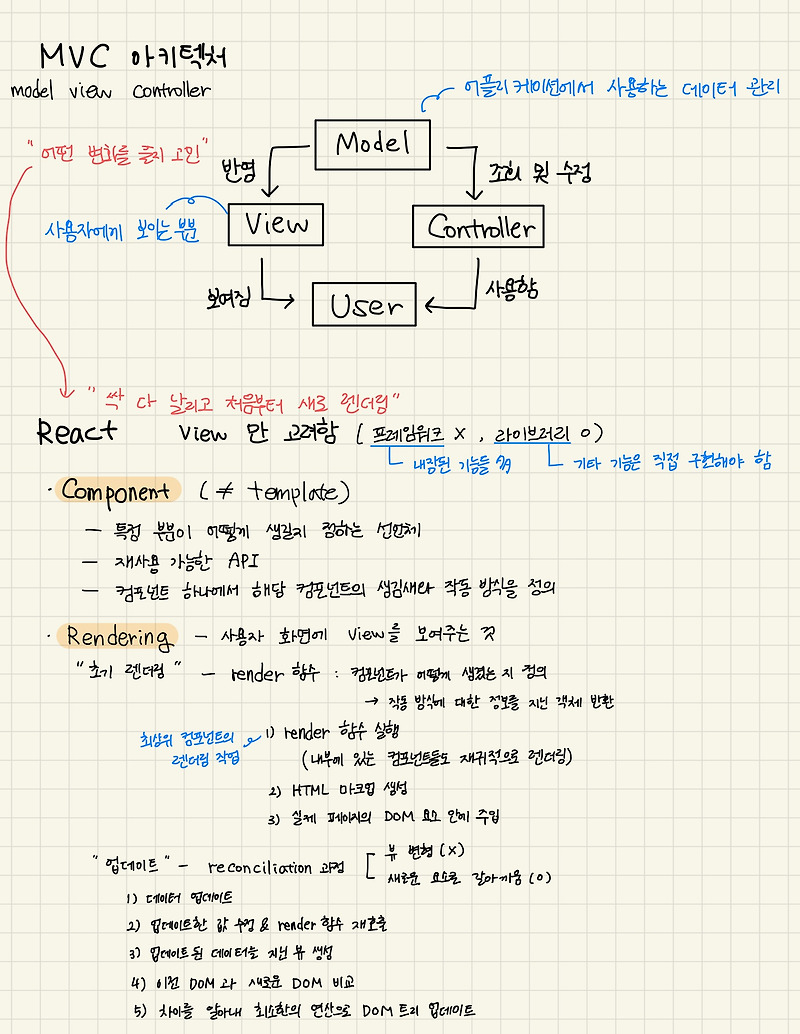 MVC 아키텍처
model view controller
어플리케이션에서 사용하는 데이터 관리
"어떤 변화를 줄지 고민"
Model
반영
조회 및 수정
사용자에게 보이는 부분
View
Controller
보여짐
User
사용함
"싹 다 날리고 처음부터 새로 렌더링"
React View 만 고려함 (프레임워크 X, 라이브러리 O)
내장된 기능들 多
기타 기능은 직접 구현해야 함
· Component (≠ template)
— 특정 부분이 어떻게 생길지 정하는 선언체
— 재사용 가능한 API
— 컴포넌트 하나에서 해당 컴포넌트의 생김새와 작동 방식을 정의
· Rendering — 사용자 화면에 view를 보여주는 것
"초기 렌더링" — render 함수 : 컴포넌트가 어떻게 생겼는 지 정의
→ 작동 방식에 대한 정보를 지닌 객체 반환
최상위 컴포넌트의
렌더링 작업
1) render 함수 실행
(내부에 있는 컴포넌트들도 재귀적으로 렌더링)
2) HTML 마크업 생성
3) 실제 페이지의 DOM 요소 안에 주입
"업데이트" — reconciliation 과정
뷰 변형 (X)
새로운 요소로 갈아끼움 (O)
1) 데이터 업데이트
2) 업데이트한 값 수정 & render 함수 재호출
3) 업데이트된 데이터를 지닌 뷰 생성
4) 이전 DOM 과 새로운 DOM 비교
5) 차이를 알아내 최소한의 연산으로 DOM 트리 업데이트